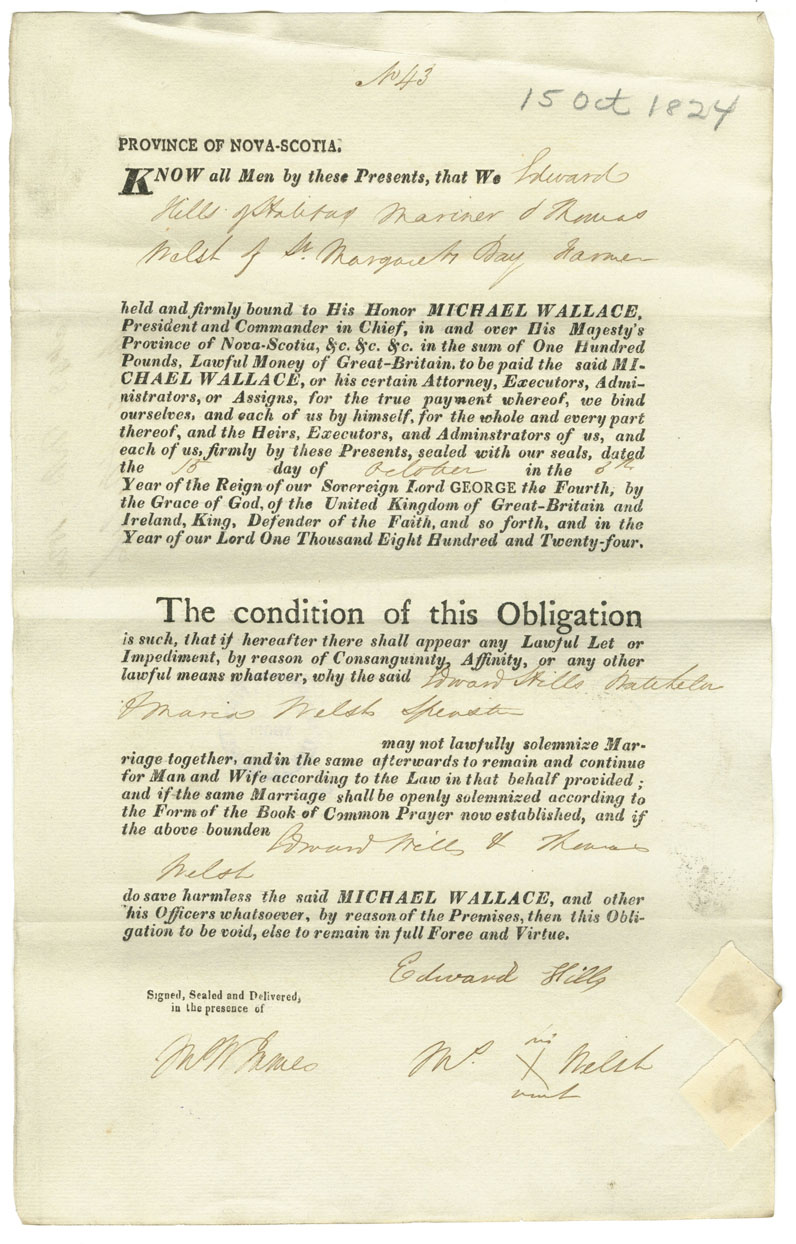 No 43
15 Oct 1824
PROVINCE OF NOVA-SCOTIA.
KNOW all Men by these Presents, that We Edward
Hills of Halifax Mariner & Thomas
Welsh of St. Margarets Bay Farmer
held and firmly bound to His Honor MICHAEL WALLACE,
President and Commander in Chief, in and over His Majesty's
Province of Nova-Scotia, &c. &c. &c. in the sum of One Hundred
Pounds, Lawful Money of Great-Britain. to be paid the said MI-
CHAEL WALLACE, or his certain Attorney, Executors, Admi-
nistrators, or Assigns, for the true payment whereof, we bind
ourselves, and each of us by himself, for the whole and every part
thereof, and the Heirs, Executors, and Adminstrators of us, and
each of us, firmly by these Presents, sealed with our seals, dated
the 15 day of October in the 5th
Year of the Reign of our Sovereign Lord GEORGE the Fourth, by
the Grace of God, of the United Kingdom of Great-Britain and
Ireland, King, Defender of the Faith, and so forth, and in the
Year of our Lord One Thousand Eight Hundred and Twenty-four.
The condition of this Obligation
is such, that if hereafter there shall appear any Lawful Let or
Impediment, by reason of Consanguinity, Affinity, or any other
lawful means whatever, why the said Edward Hills Batchelor
& Maria Welsh Spinster
may not lawfully solemnize Mar-
riage together, and in the same afterwards to remain and continue
for Man and Wife according to the Law in that behalf provided;
and if the same Marriage shall be openly solemnized according to
the Form of the Book of Common Prayer now established, and if
the above bounden Edward Hills & Thomas
Welsh
do save harmless the said MICHAEL WALLACE, and other
his Officers whatsoever, by reason of the Premises, then this Obli-
gation to be void, else to remain in full Force and Virtue.
Edward Hills
Signed, Sealed and Delivered,
in the presence of
James
his
X Welsh
mark